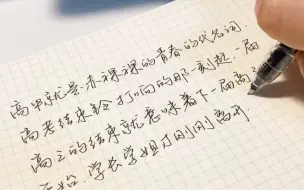 高中就是赤裸裸的青春的代名词
高考结束铃打响的那一刻起,一届
高三的结束就意味着下一届高三
开始,学长学姐才刚刚离开